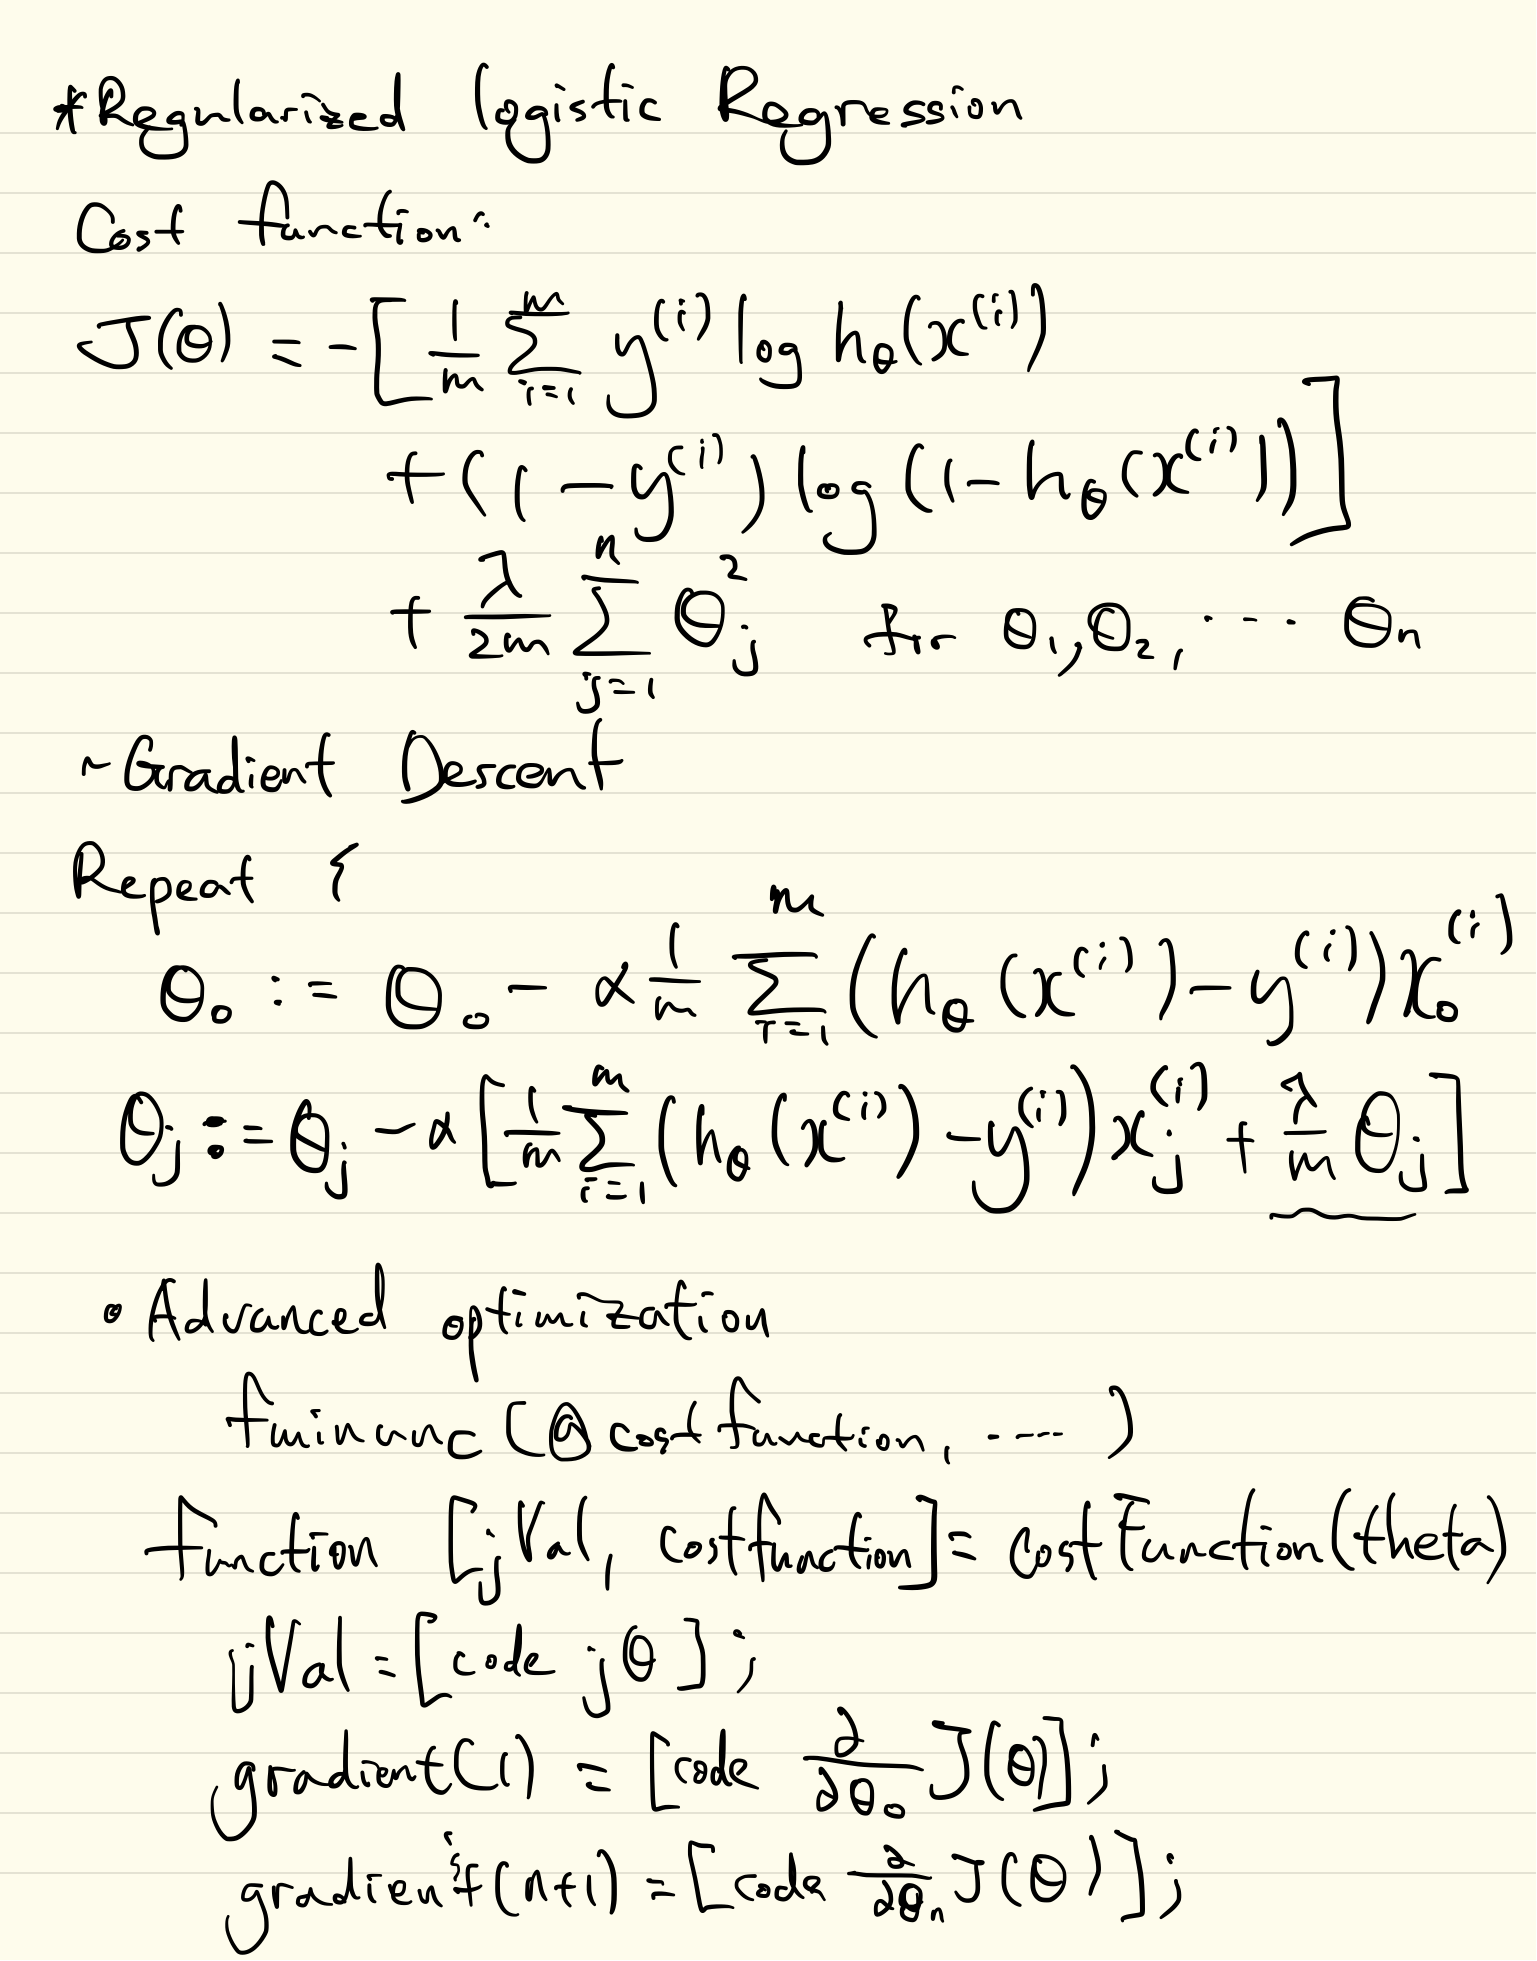 *Regularized logistic Regression
Cost function:
J(θ) = -[ 1/m Σ_{i=1}^{m} y^{(i)} log h_θ(x^{(i)})
+ (1 - y^{(i)}) log (1 - h_θ(x^{(i)}))]
+ λ/2m Σ_{j=1}^{n} θ_j^2 for θ_1, θ_2, ... θ_n
~Gradient Descent
Repeat {
θ_0 := θ_0 - α 1/m Σ_{i=1}^{m} (h_θ(x^{(i)}) - y^{(i)}) x_0^{(i)}
θ_j := θ_j - α [ 1/m Σ_{i=1}^{m} (h_θ(x^{(i)}) - y^{(i)}) x_j^{(i)} + λ/m θ_j ]
• Advanced optimization
fminunc (@costfunction, ....)
function [jVal, costfunction] = costFunction(theta)
jVal = [code jθ];
gradient(1) = [code ∂/∂θ_0 J(θ)];
gradient(n+1) = [code ∂/∂θ_n J(θ)];